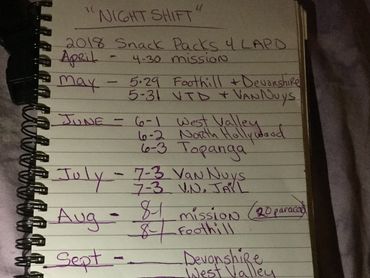 "NIGHT SHIFT"
2018 Snack Packs 4 LAPD
April - 4-30 mission
May - 5-29 Foothill + Devonshire
5-31 VTD + VAN Nuys
JUNE - 6-1 West Valley
6-2 North Hollywood
6-3 Topanga
July - 7-3 VAN Nuys
7-3 V.N. JAIL
Aug - 8-1 mission (20 paracord)
8-1 Foothill
Sept - Devonshire
West Valley